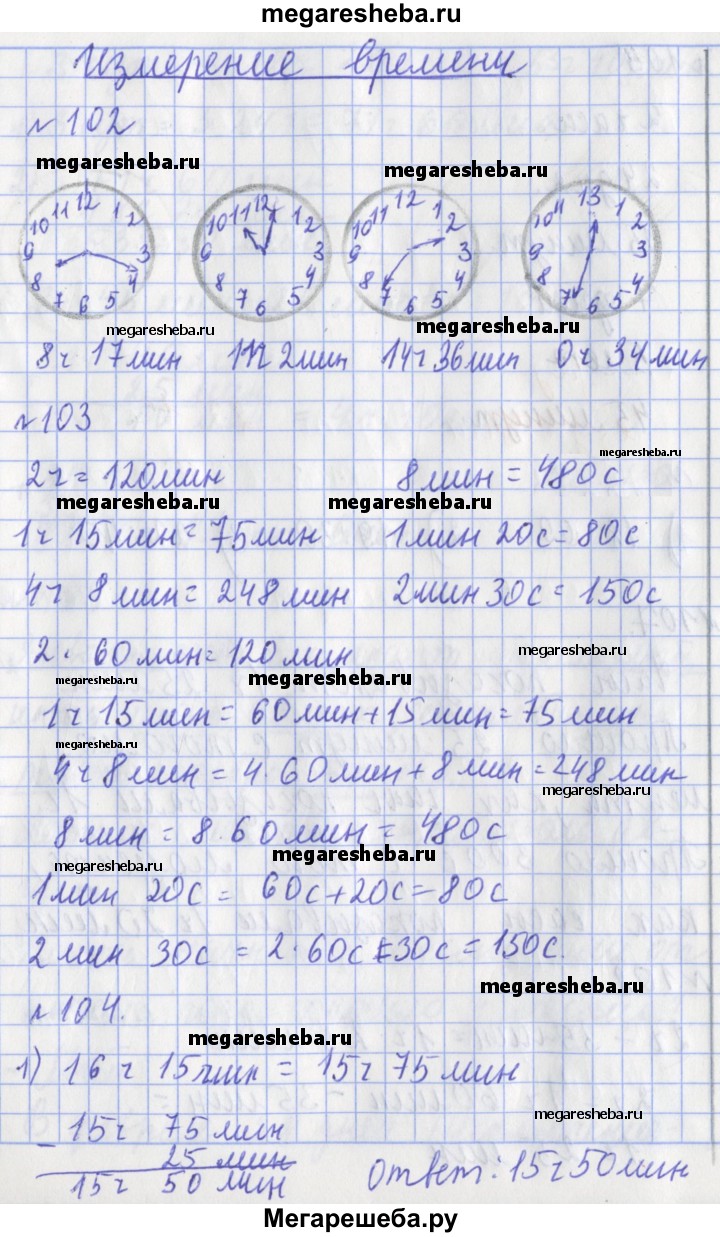 megaresheba.ru
Измерение времени
№ 102
megaresheba.ru megaresheba.ru
12 1 2 3 4 5 6 7 8 9 10 11
12 1 2 3 4 5 6 7 8 9 10 11
12 1 2 3 4 5 6 7 8 9 10 11
13 1 2 3 4 5 6 7 8 9 10 11
megaresheba.ru megaresheba.ru
8ч 17мин 11ч 2мин 14ч 36мин 0ч 34мин
№103
megaresheba.ru
2ч = 120мин 8мин = 480с
megaresheba.ru megaresheba.ru
1ч 15мин = 75мин 1мин 20с = 80с
4ч 8мин = 248мин 2мин 30с = 150с
2 · 60мин = 120мин megaresheba.ru
megaresheba.ru megaresheba.ru
1ч 15мин = 60мин + 15мин = 75мин
megaresheba.ru
4ч 8мин = 4 · 60мин + 8мин = 248мин
megaresheba.ru
8мин = 8 · 60мин = 480с
megaresheba.ru megaresheba.ru
1мин 20с = 60с + 20с = 80с
2мин 30с = 2 · 60с + 30с = 150с.
megaresheba.ru
№ 104.
megaresheba.ru
1) 16ч 15мин = 15ч 75мин
megaresheba.ru
- 15ч 75мин
25мин
15ч 50мин Ответ: 15ч 50мин
Мегарешеба.ру